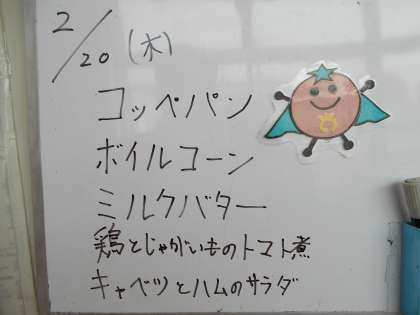 2/20(木)
コッペパン
ボイルコーン
ミルクバター
鶏とじゃがいものトマト煮
キャベツとハムのサラダ